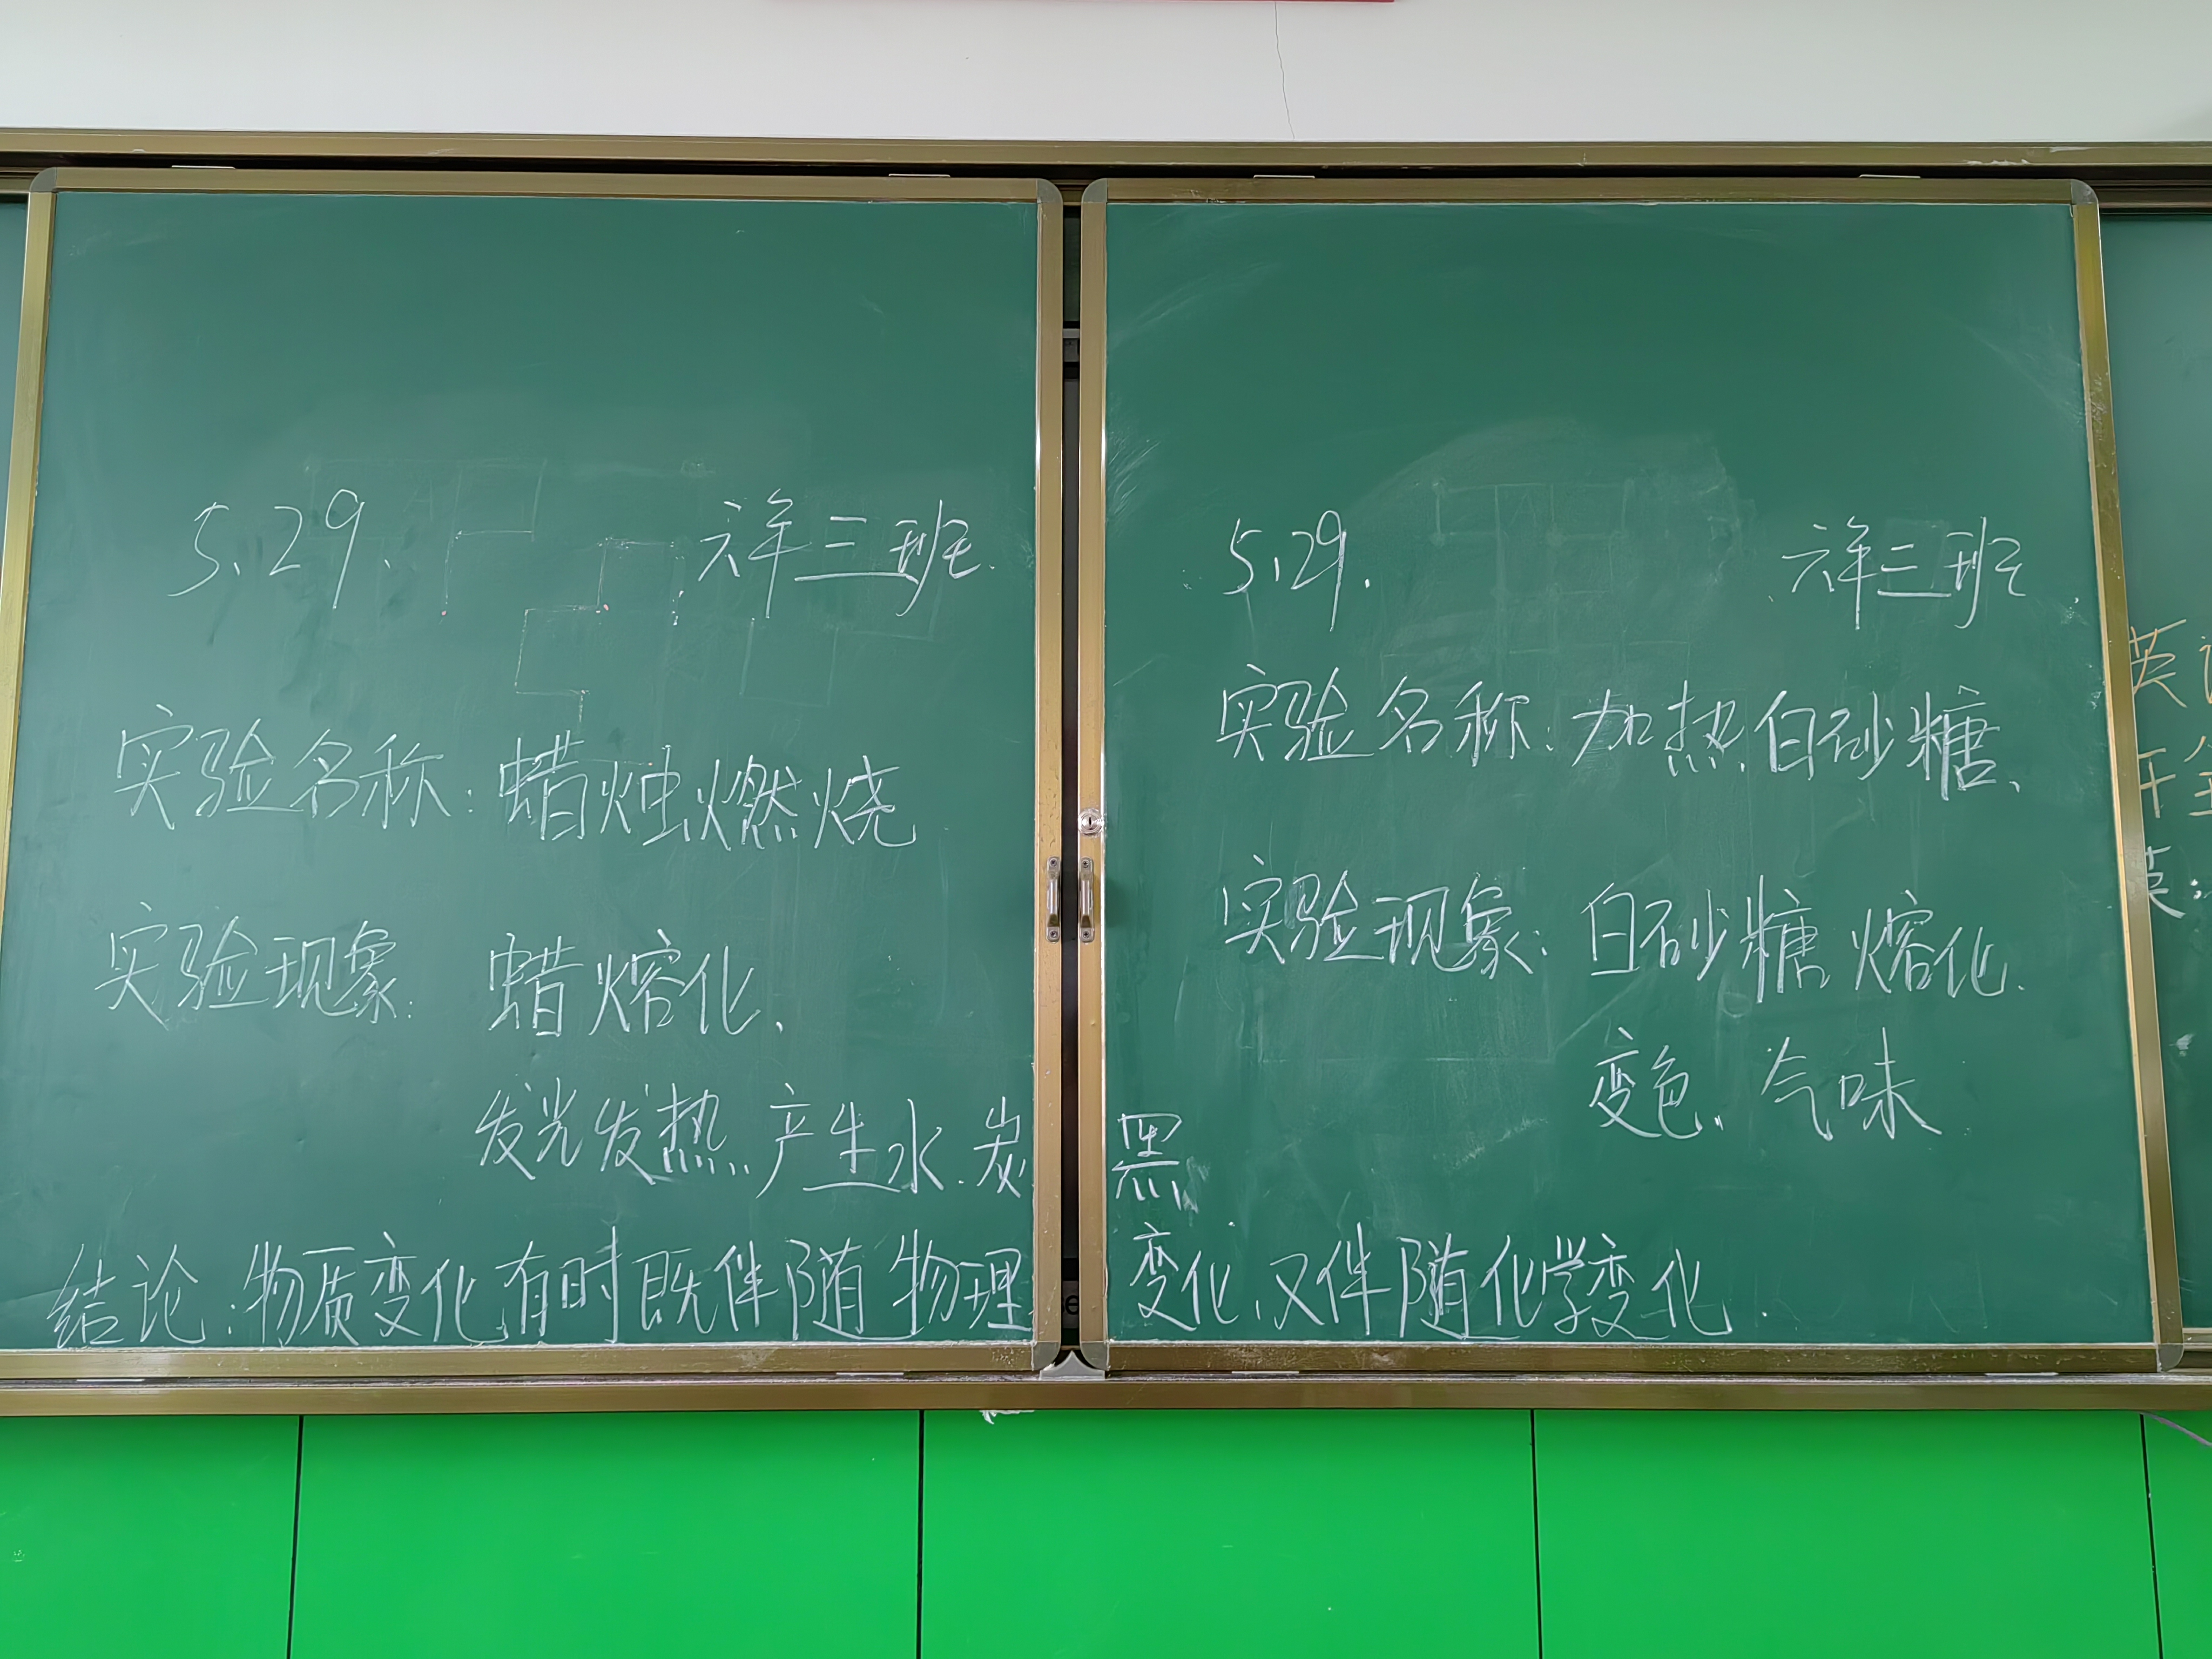 5.29. 六年三班.
实验名称:蜡烛燃烧
实验现象: 蜡熔化、
发光发热.产生水.炭黑
5.29. 六年三班
实验名称:加热白砂糖、
实验现象:白砂糖熔化.
变色、气味
结论:物质变化有时既伴随物理变化、又伴随化学变化.
英
午
英: